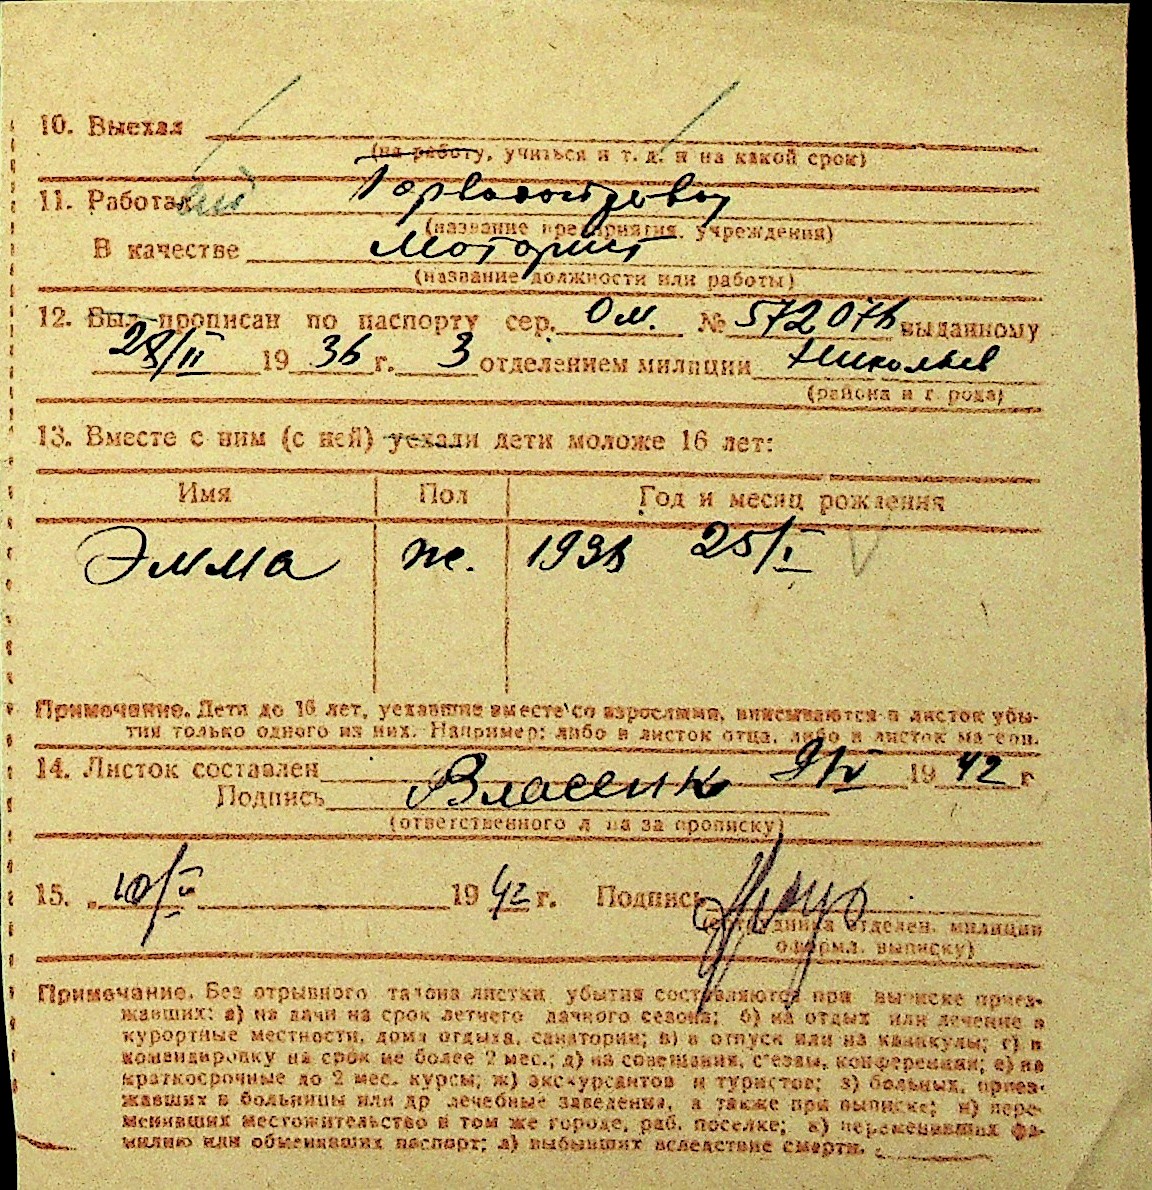 10. Выехал
(на работу, учиться и т. д. и на какой срок)
11. Работал
(название предприятия, учреждения)
В качестве Моторист
(название должности или работы)
12. Был прописан по паспорту сер. Ом. № выданному
28/II 19 36 г. 3 отделением милиции Николаев
(района и города)
13. Вместе с ним (с ней) уехали дети моложе 16 лет:
Имя Пол Год и месяц рождения
Эмма ж. 1938 25/I
Примечание. Дети до 16 лет, уехавшие вместе со взрослыми, вписываются в листок убы-
тия только одного из них. Например: либо в листок отца, либо в листок матери.
14. Листок составлен 9/IV 19 42 г
Подпись Власенк
(ответственного лица за прописку)
15. „ 10/V 19 42 г. Подпись
(сотрудника отделен. милиции
оформл. выписку)
Примечание. Без отрывного талона листки убытия составляются при выписке приез-
жавших: а) на дачи на срок летнего дачного сезона; б) на отдых или лечение в
курортные местности, дома отдыха, санатории; в) в отпуск или на каникулы; г) в
командировку на срок не более 2 мес.; д) на совещания, съезды, конференции; е) на
краткосрочные до 2 мес. курсы; ж) экскурсантов и туристов; з) больных, приез-
жавших в больницы или др лечебные заведения, а также при выписке; и) пере-
менивших местожительство в том же городе, раб. поселке; к) переменивших фа-
милию или обменявших паспорт; л) выбывших вследствие смерти.